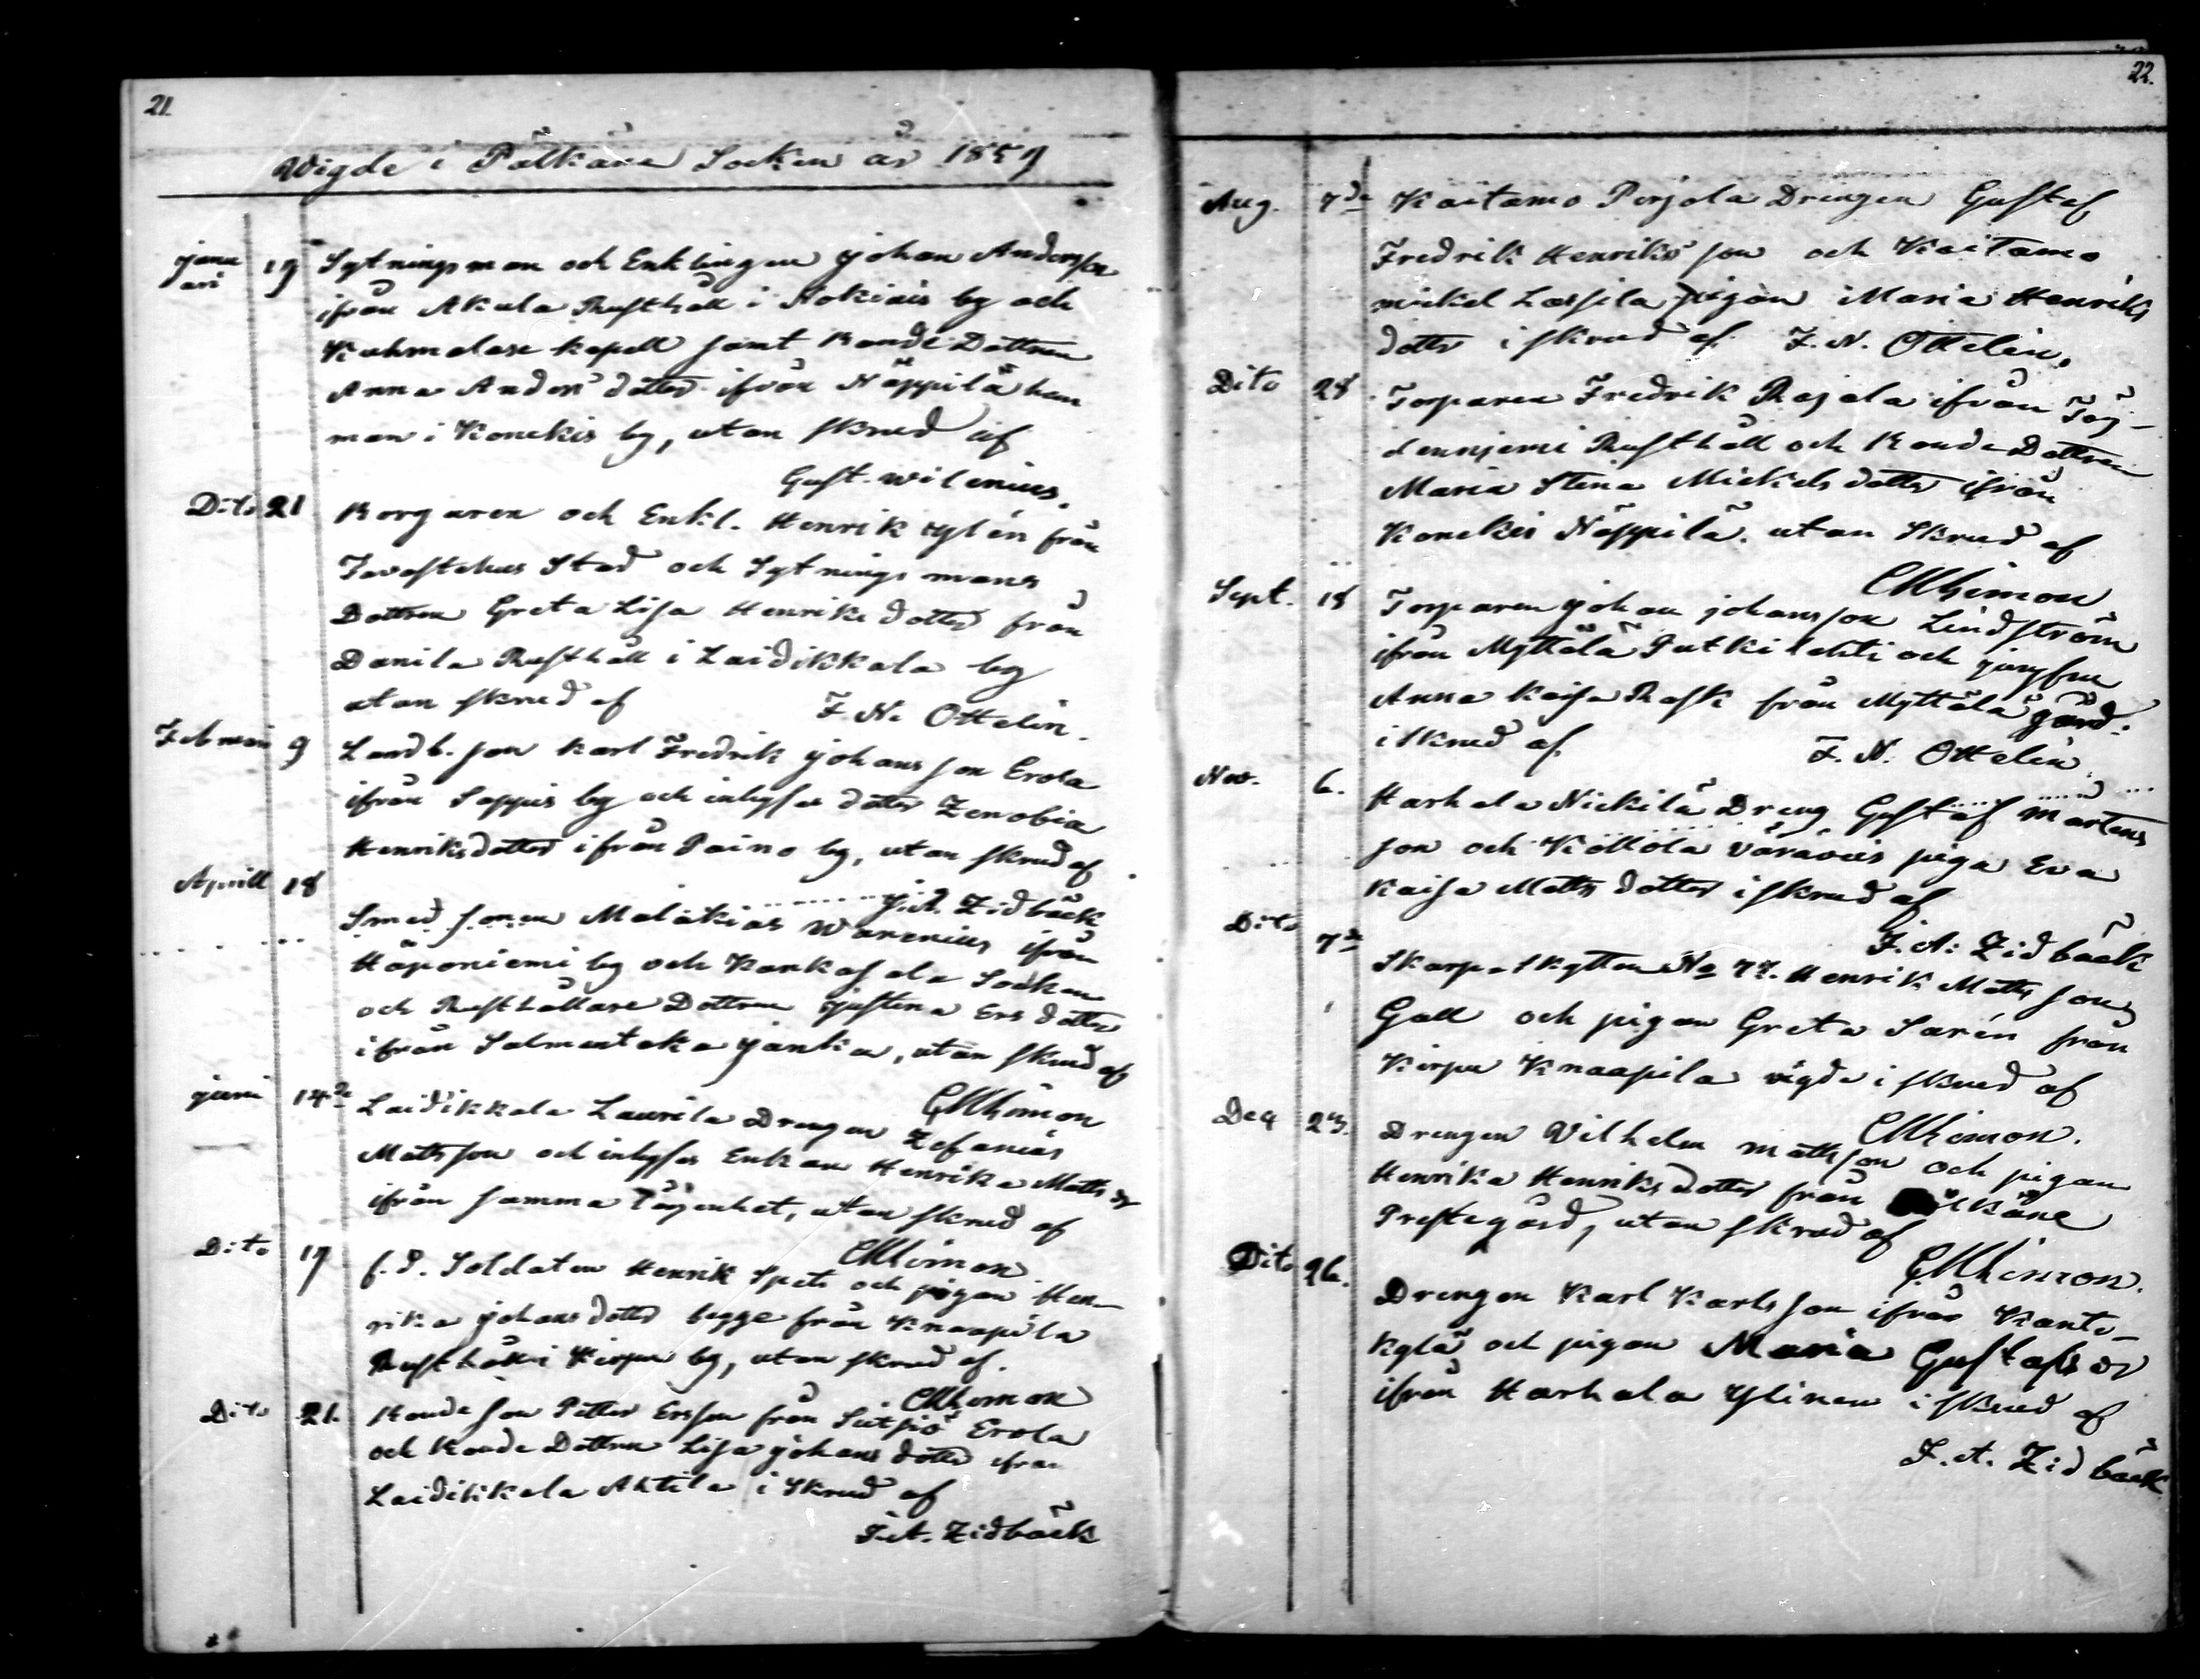 21.
Wigde i Pälkäne Socken år 1859
Janu
ari 19 Sytningsman och Enklingen Johan Andersson
ifrån Akula Rusthåll i Nokiais by och
Kuhmalax kapell samt Bonde Dottren
Anna Anders dotter ifrån Näppilä hem
man i Konekis by, utan skrud af
Gust. Wilenius.
Dito 21 Borgaren och Enkl. Henrik Ylén från
Tavastehus Stad och Sytnings mans
Dottren Greta Lisa Henriks dotter från
Danila Rusthåll i Laidikkala by
utan skrud af F. N. Ottelin.
Februari 9 Landb. son Karl Fredrik Johansson Erola
ifrån Sappis by och inhyses dotter Zenobia
Henriksdotter ifrån Paino by, utan skrud af
F. A. Zidbäck
Aprill 18 Smed sonen Malakias Warenius ifrån
Haponiemi by och Kankasala Socken
och Rusthållare Dottren Justina Ers dotter
ifrån Salmentaka Janka, utan skrud af
CMLimon
Juni 14de Laidikkala Laurila Drengen Zefanias
Mattsson och inhyses Enkan Henrika Matts dr
ifrån samma Lägenhet, utan skrud af
CMLimon
Dito 19 f. d. Soldaten Henrik Spets och pigan Hen-
rika Johansdotter begge från Knaapila
Rusthåll i Kirpu by, utan skrud af.
CMLimon
Dito 21. Bonde son Petter Ersson från Seitsiö Erola
och Bonde Dottren Lisa Johans dotter ifrån
Laidikkala Ahtila i Skrud af
F. A. Zidbäck
22.
Aug. 7de Kaitamo Perjola Drengen Gustaf
Fredrik Henriks son och Kaitamo
mickel Lassila pigan Maria Henriks
dotter i skrud af F. N. Ottelin.
Dito 28 Torparen Fredrik Rajala ifrån
Rusthåll och Bonde Dottren
Maria Stina Mickels dotter ifrån
Konekis Näppilä. utan Skrud af
CMLimon
Sept. 18 Torparen Johan Johansson Lindström
ifrån Myttälä Putkilahti och jungfru
Anna Kaisa Rask från Myttälä gård.
i Skrud af F. N. Ottelin.
Nov. 6. Harhala Nickilä Dreng Gustaf Mårtens
son och Köllölä piga Eva
Kaisa Matts dotter i skrud af
F. A. Zidbäck
Dito 7de Skarpskytten No 77. Henrik Matts son
Gall och pigan Greta Sarén från
Kirpu Knaapila vigde i skrud af
CMLimon.
Dec 23. Drengen Wilhelm Mattsson och pigan
Henrika Henriks dotter från Pälkäne
Prestegård, utan skrud af
CMLimon.
Dito 26. Drengen Karl Karlsson ifrån Kanto-
kylä och pigan Maria Gustafs dr
ifrån Harhala Ylinen i skrud af
F. A. Zidbäck